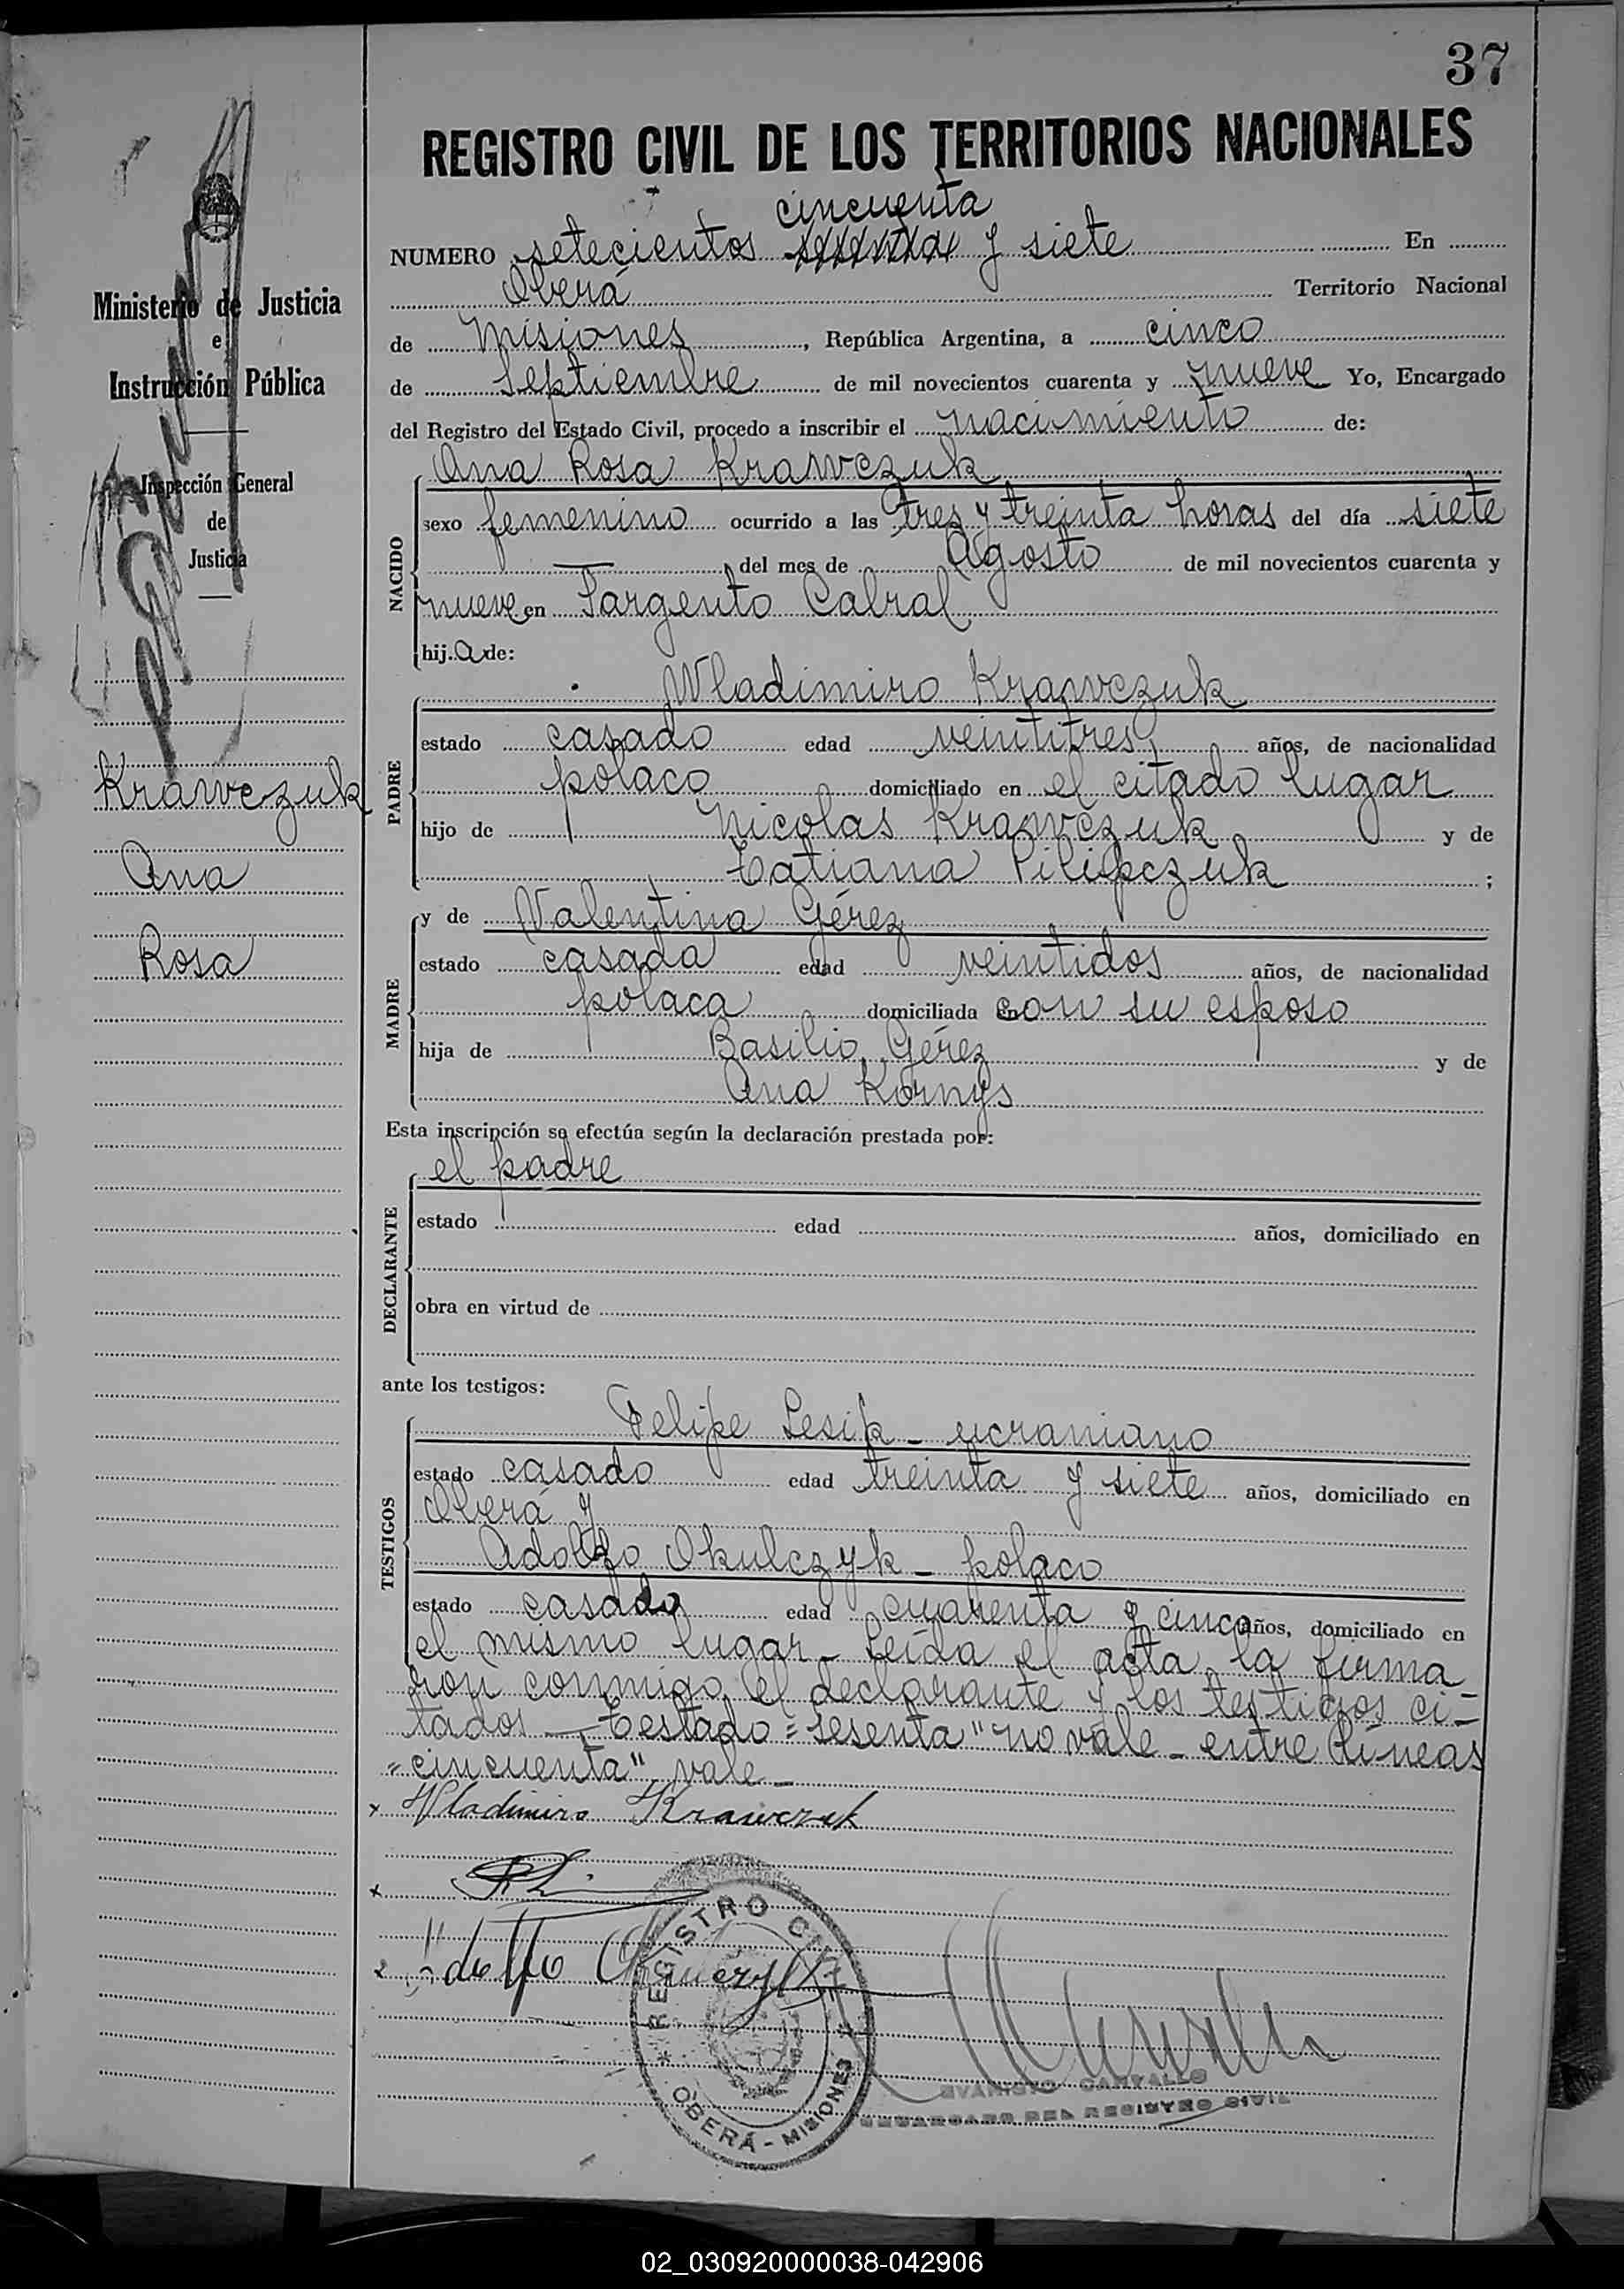 37
REGISTRO CIVIL DE LOS TERRITORIOS NACIONALES
cincuenta
NUMERO setecientos y siete En
Oberá Territorio Nacional
de Misiones, República Argentina, a cinco
de Septiembre de mil novecientos cuarenta y nueve Yo, Encargado
del Registro del Estado Civil, procedo a inscribir el nacimiento de:
Ministerio de Justicia
e
Instrucción Pública
Inspección General
de
Justicia
Krawczuk
Ana
Rosa
NACIDO
Ana Rosa Krawczuk
sexo femenino ocurrido a las tres y treinta horas del día siete
del mes de Agosto de mil novecientos cuarenta y
nueve en Sargento Cabral
hija de:
PADRE
Wladimiro Krawczuk
estado casado edad veintitres años, de nacionalidad
polaco domiciliado en el citado lugar
hijo de Nicolas Krawczuk y de
Tatiana Pilipczuk ;
MADRE
y de Valentina Gérez
estado casada edad veintidos años, de nacionalidad
polaca domiciliada con su esposo
hija de Basilio Gérez y de
Ana Kornys
Esta inscripción se efectúa según la declaración prestada por:
DECLARANTE
el padre
estado edad años, domiciliado en
obra en virtud de
ante los testigos:
TESTIGOS
Felipe Lesik - ucraniano
estado casado edad treinta y siete años, domiciliado en
Oberá y
Adolfo Okulczyk - polaco
estado casado edad cuarenta y cinco años, domiciliado en
el mismo lugar - Leída el acta, la firma
ron conmigo el declarante y los testigos ci-
tados - Testado = sesenta" no vale - entre líneas
"cincuenta" vale -
x Wladimiro Krawczuk
x
x Adolfo
REGISTRO CIVIL
OBERÁ - MISIONES
EVARISTO CARVALLO
ENCARGADO DEL REGISTRO CIVIL
02_030920000038-042906